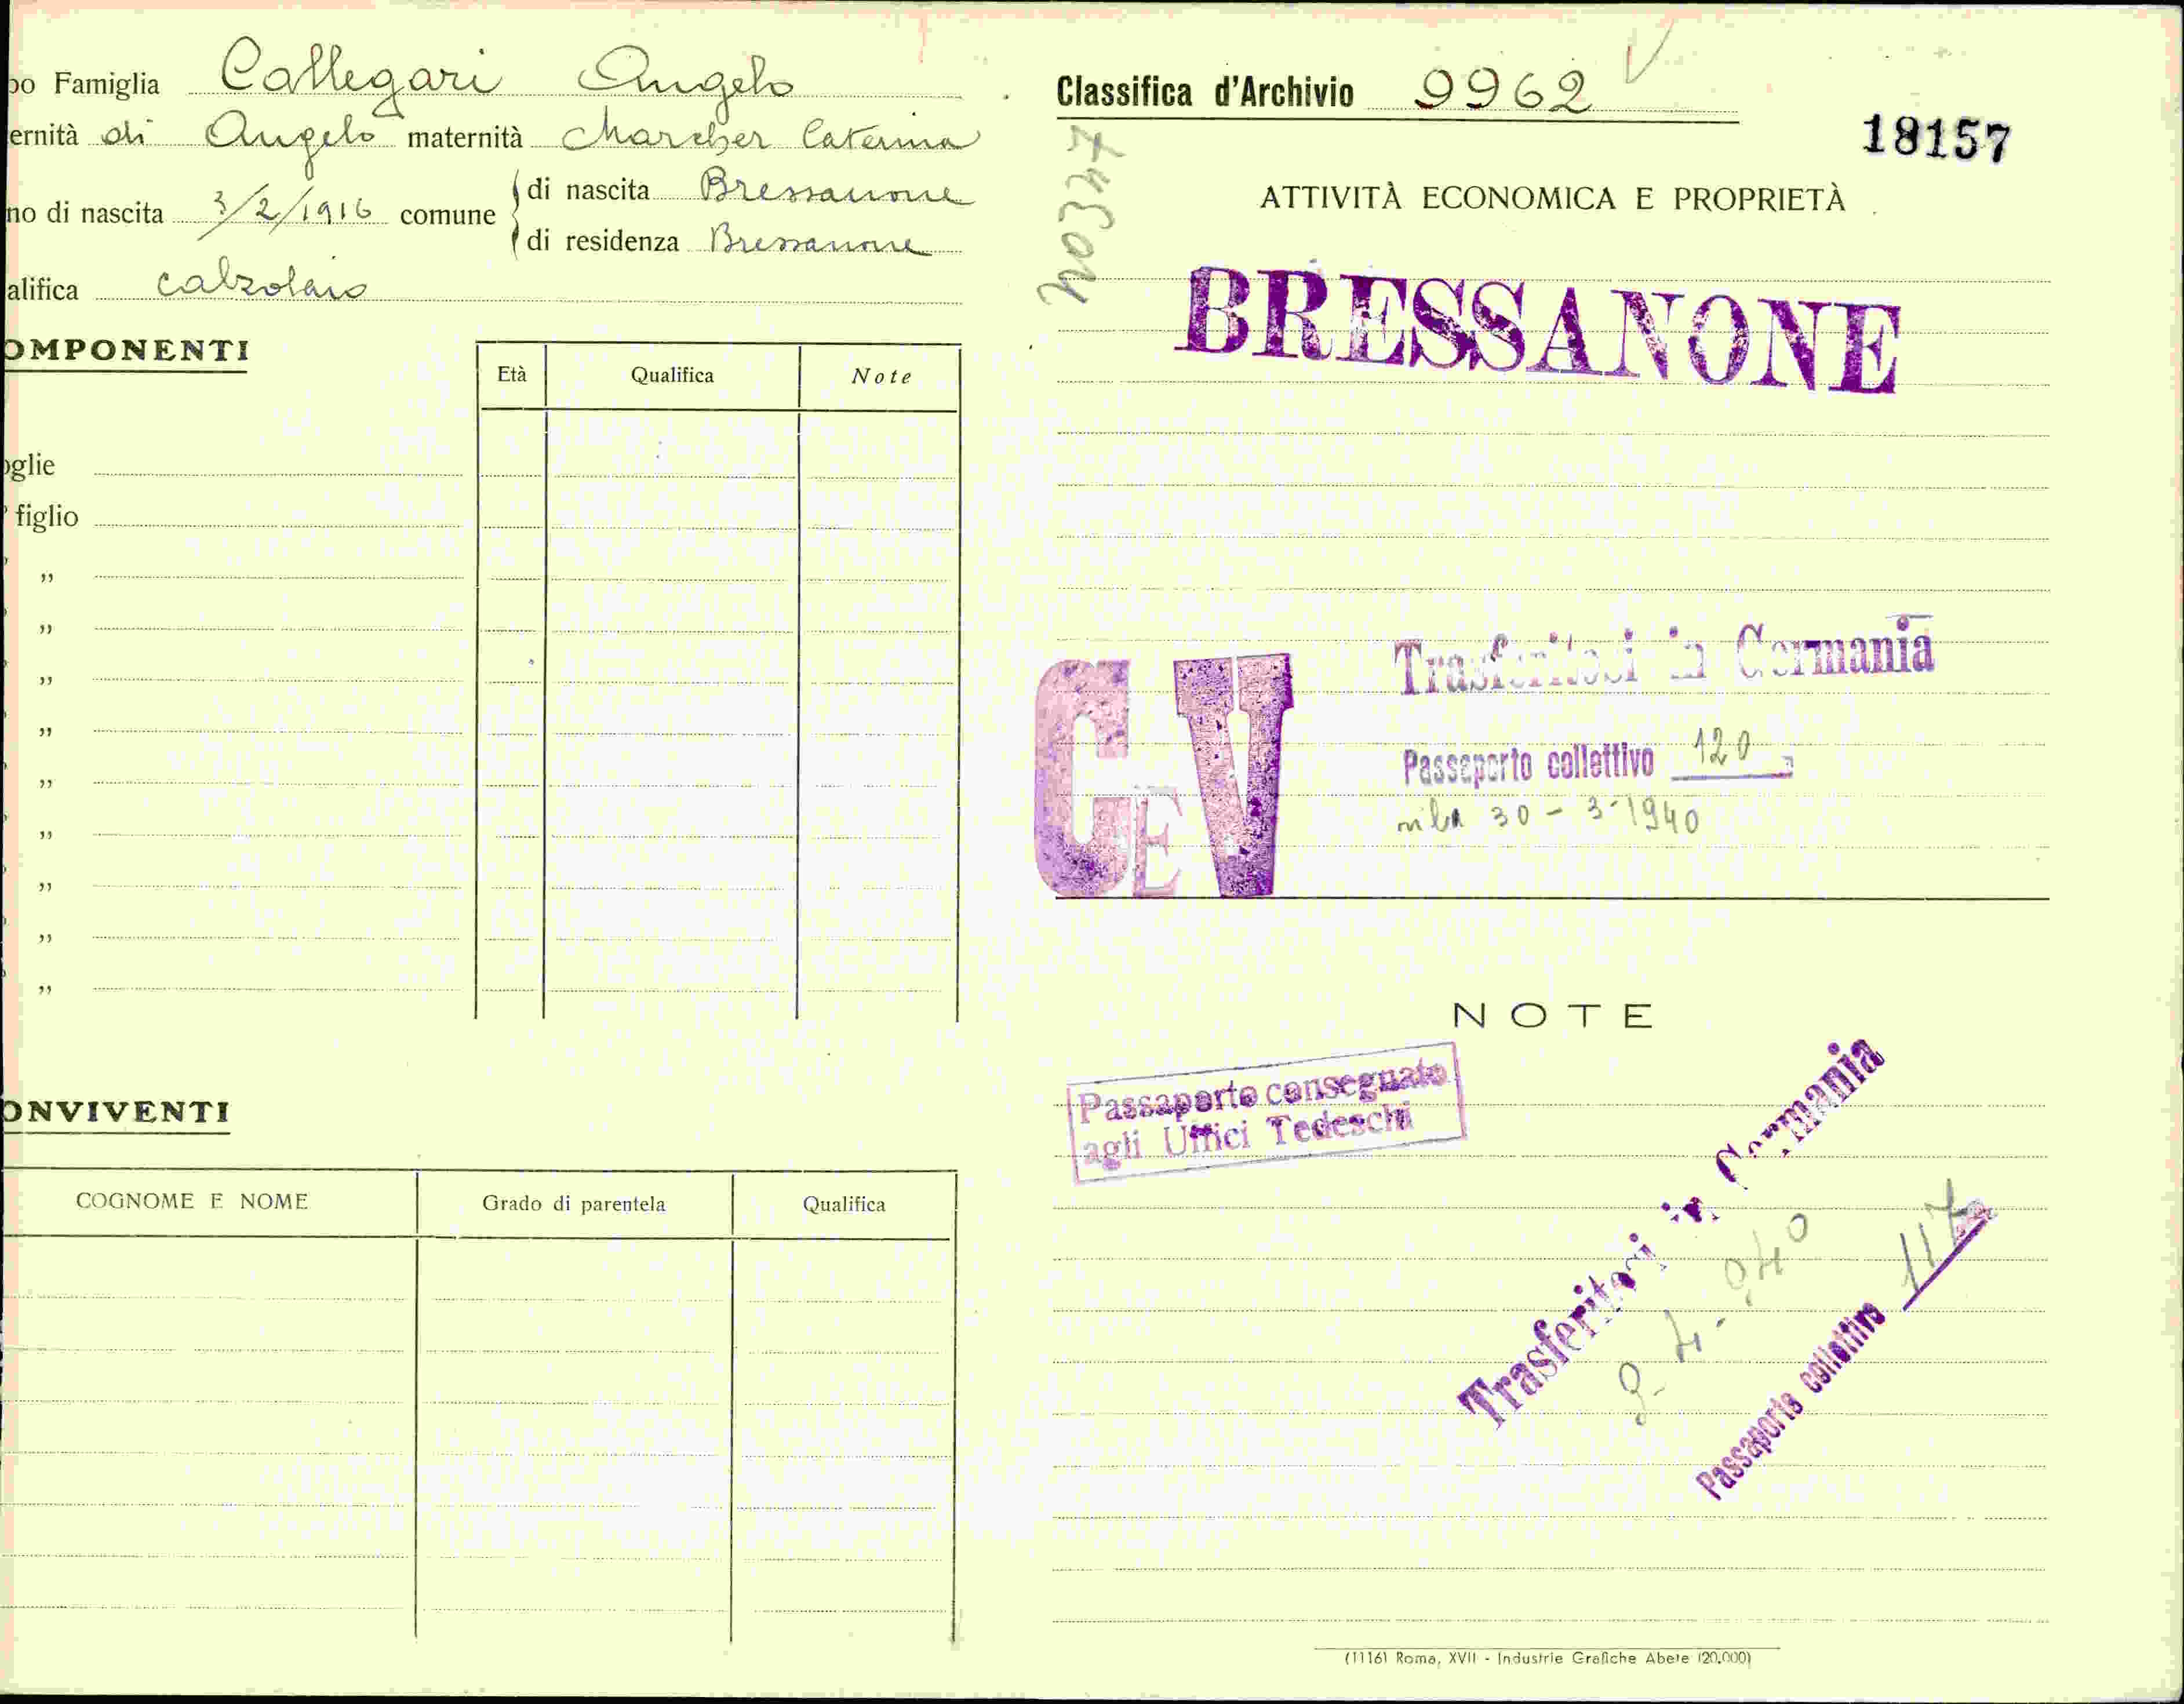 po Famiglia Callegari Angelo
ernità di Angelo maternità Marcher Caterina
no di nascita 3/2/1916 comune
di nascita Bressanone
di residenza Bressanone
alifica calzolaio
OMPONENTI
Età Qualifica Note
oglie
figlio
"
"
"
"
"
"
"
"
"
ONVIVENTI
COGNOME E NOME Grado di parentela Qualifica
Classifica d'Archivio 9962
18157
ATTIVITÀ ECONOMICA E PROPRIETÀ
BRESSANONE
GEV
Trasferitosi in Germania
Passaporto collettivo 120
30-3-1940
NOTE
Passaporto consegnato
agli Uffici Tedeschi
Trasferitosi in Germania
Passaporto collettivo 117
(1116) Roma, XVII - Industrie Grafiche Abete (20.000)